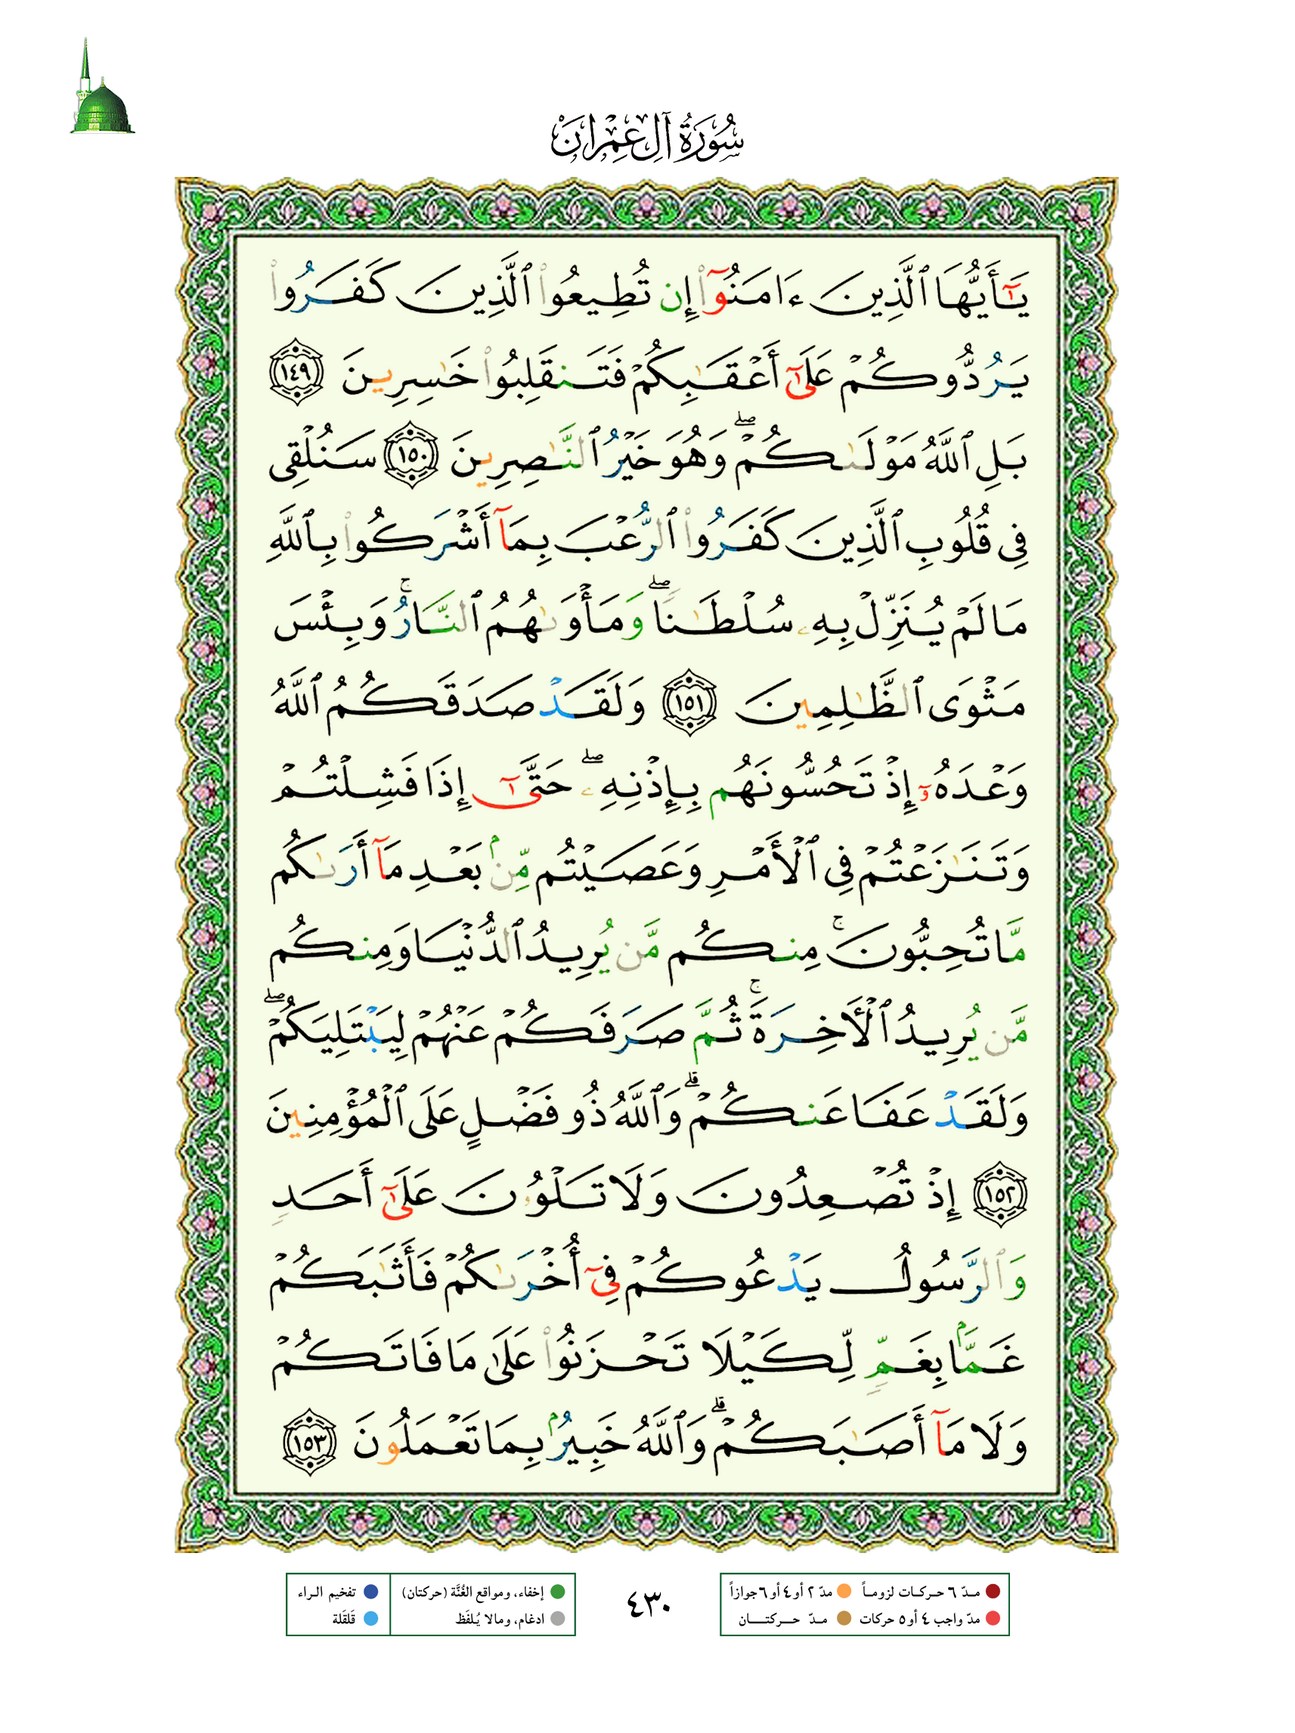 سُورَةُ آلِ عِمْرَانَ
يَـٰٓأَيُّهَا ٱلَّذِينَ ءَامَنُوٓا۟ إِن تُطِيعُوا۟ ٱلَّذِينَ كَفَرُوا۟
يَرُدُّوكُمْ عَلَىٰٓ أَعْقَـٰبِكُمْ فَتَنقَلِبُوا۟ خَـٰسِرِينَ ١٤٩
بَلِ ٱللَّهُ مَوْلَىٰكُمْ ۖ وَهُوَ خَيْرُ ٱلنَّـٰصِرِينَ ١٥٠ سَنُلْقِى
فِى قُلُوبِ ٱلَّذِينَ كَفَرُوا۟ ٱلرُّعْبَ بِمَآ أَشْرَكُوا۟ بِٱللَّهِ
مَا لَمْ يُنَزِّلْ بِهِۦ سُلْطَـٰنًا ۖ وَمَأْوَىٰهُمُ ٱلنَّارُ ۚ وَبِئْسَ
مَثْوَى ٱلظَّـٰلِمِينَ ١٥١ وَلَقَدْ صَدَقَكُمُ ٱللَّهُ
وَعْدَهُۥٓ إِذْ تَحُسُّونَهُم بِإِذْنِهِۦ ۖ حَتَّىٰٓ إِذَا فَشِلْتُمْ
وَتَنَـٰزَعْتُمْ فِى ٱلْأَمْرِ وَعَصَيْتُم مِّنۢ بَعْدِ مَآ أَرَىٰكُم
مَّا تُحِبُّونَ ۚ مِنكُم مَّن يُرِيدُ ٱلدُّنْيَا وَمِنكُم
مَّن يُرِيدُ ٱلْـَٔاخِرَةَ ۚ ثُمَّ صَرَفَكُمْ عَنْهُمْ لِيَبْتَلِيَكُمْ ۖ
وَلَقَدْ عَفَا عَنكُمْ ۗ وَٱللَّهُ ذُو فَضْلٍ عَلَى ٱلْمُؤْمِنِينَ
١٥٢ إِذْ تُصْعِدُونَ وَلَا تَلْوُۥنَ عَلَىٰٓ أَحَدٍ
وَٱلرَّسُولُ يَدْعُوكُمْ فِىٓ أُخْرَىٰكُمْ فَأَثَـٰبَكُمْ
غَمًّۢا بِغَمٍّ لِّكَيْلَا تَحْزَنُوا۟ عَلَىٰ مَا فَاتَكُمْ
وَلَا مَآ أَصَـٰبَكُمْ ۗ وَٱللَّهُ خَبِيرٌۢ بِمَا تَعْمَلُونَ ١٥٣
مـدّ ٦ حـركـات لزومـاً مدّ ٢ أو ٤ أو ٦ جوازاً
مدّ واجب ٤ أو ٥ حركات مـدّ حـــركتــــان
٤٣٠
إخفاء، ومواقع الغُنَّة (حركتان) تفخيم الـراء
ادغام، ومالا يُـلفَظ قَلقَلة